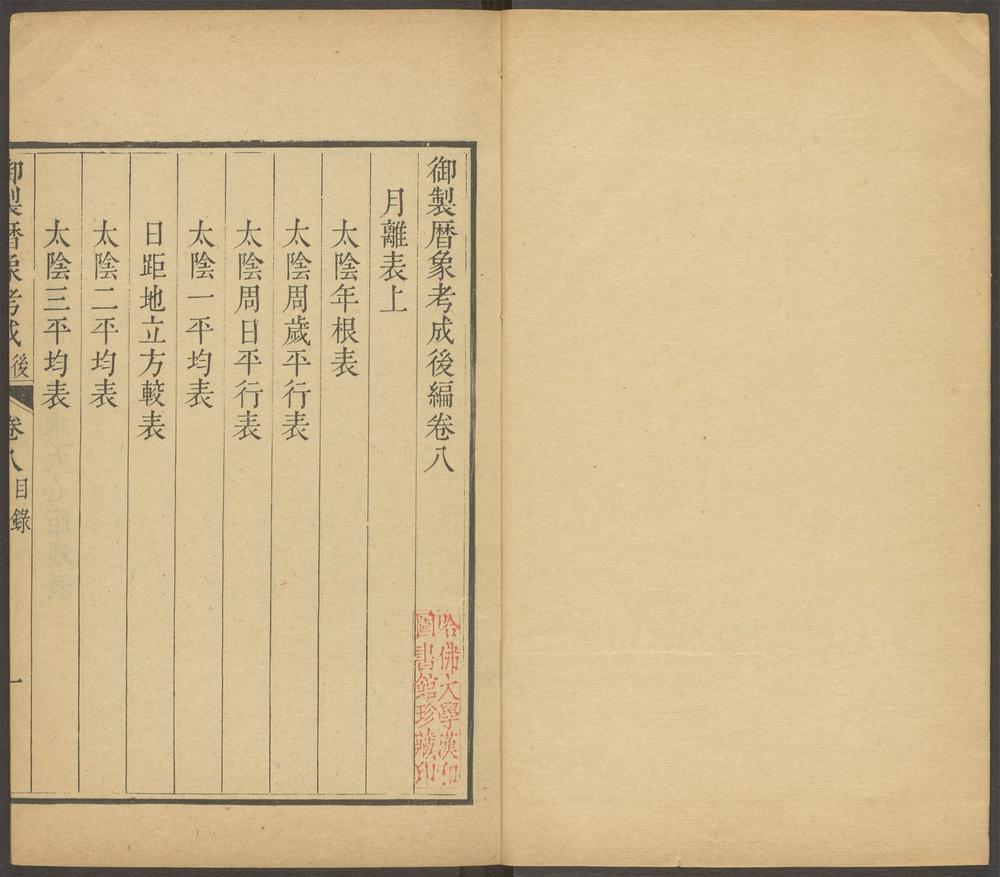 御製曆象考成後編卷八
月離表上
太陰年根表
太陰周歲平行表
太陰周日平行表
太陰一平均表
日距地立方較表
太陰二平均表
太陰三平均表
御製曆象考成後 卷八目錄 一
哈佛大學漢和
圖書館珍藏印